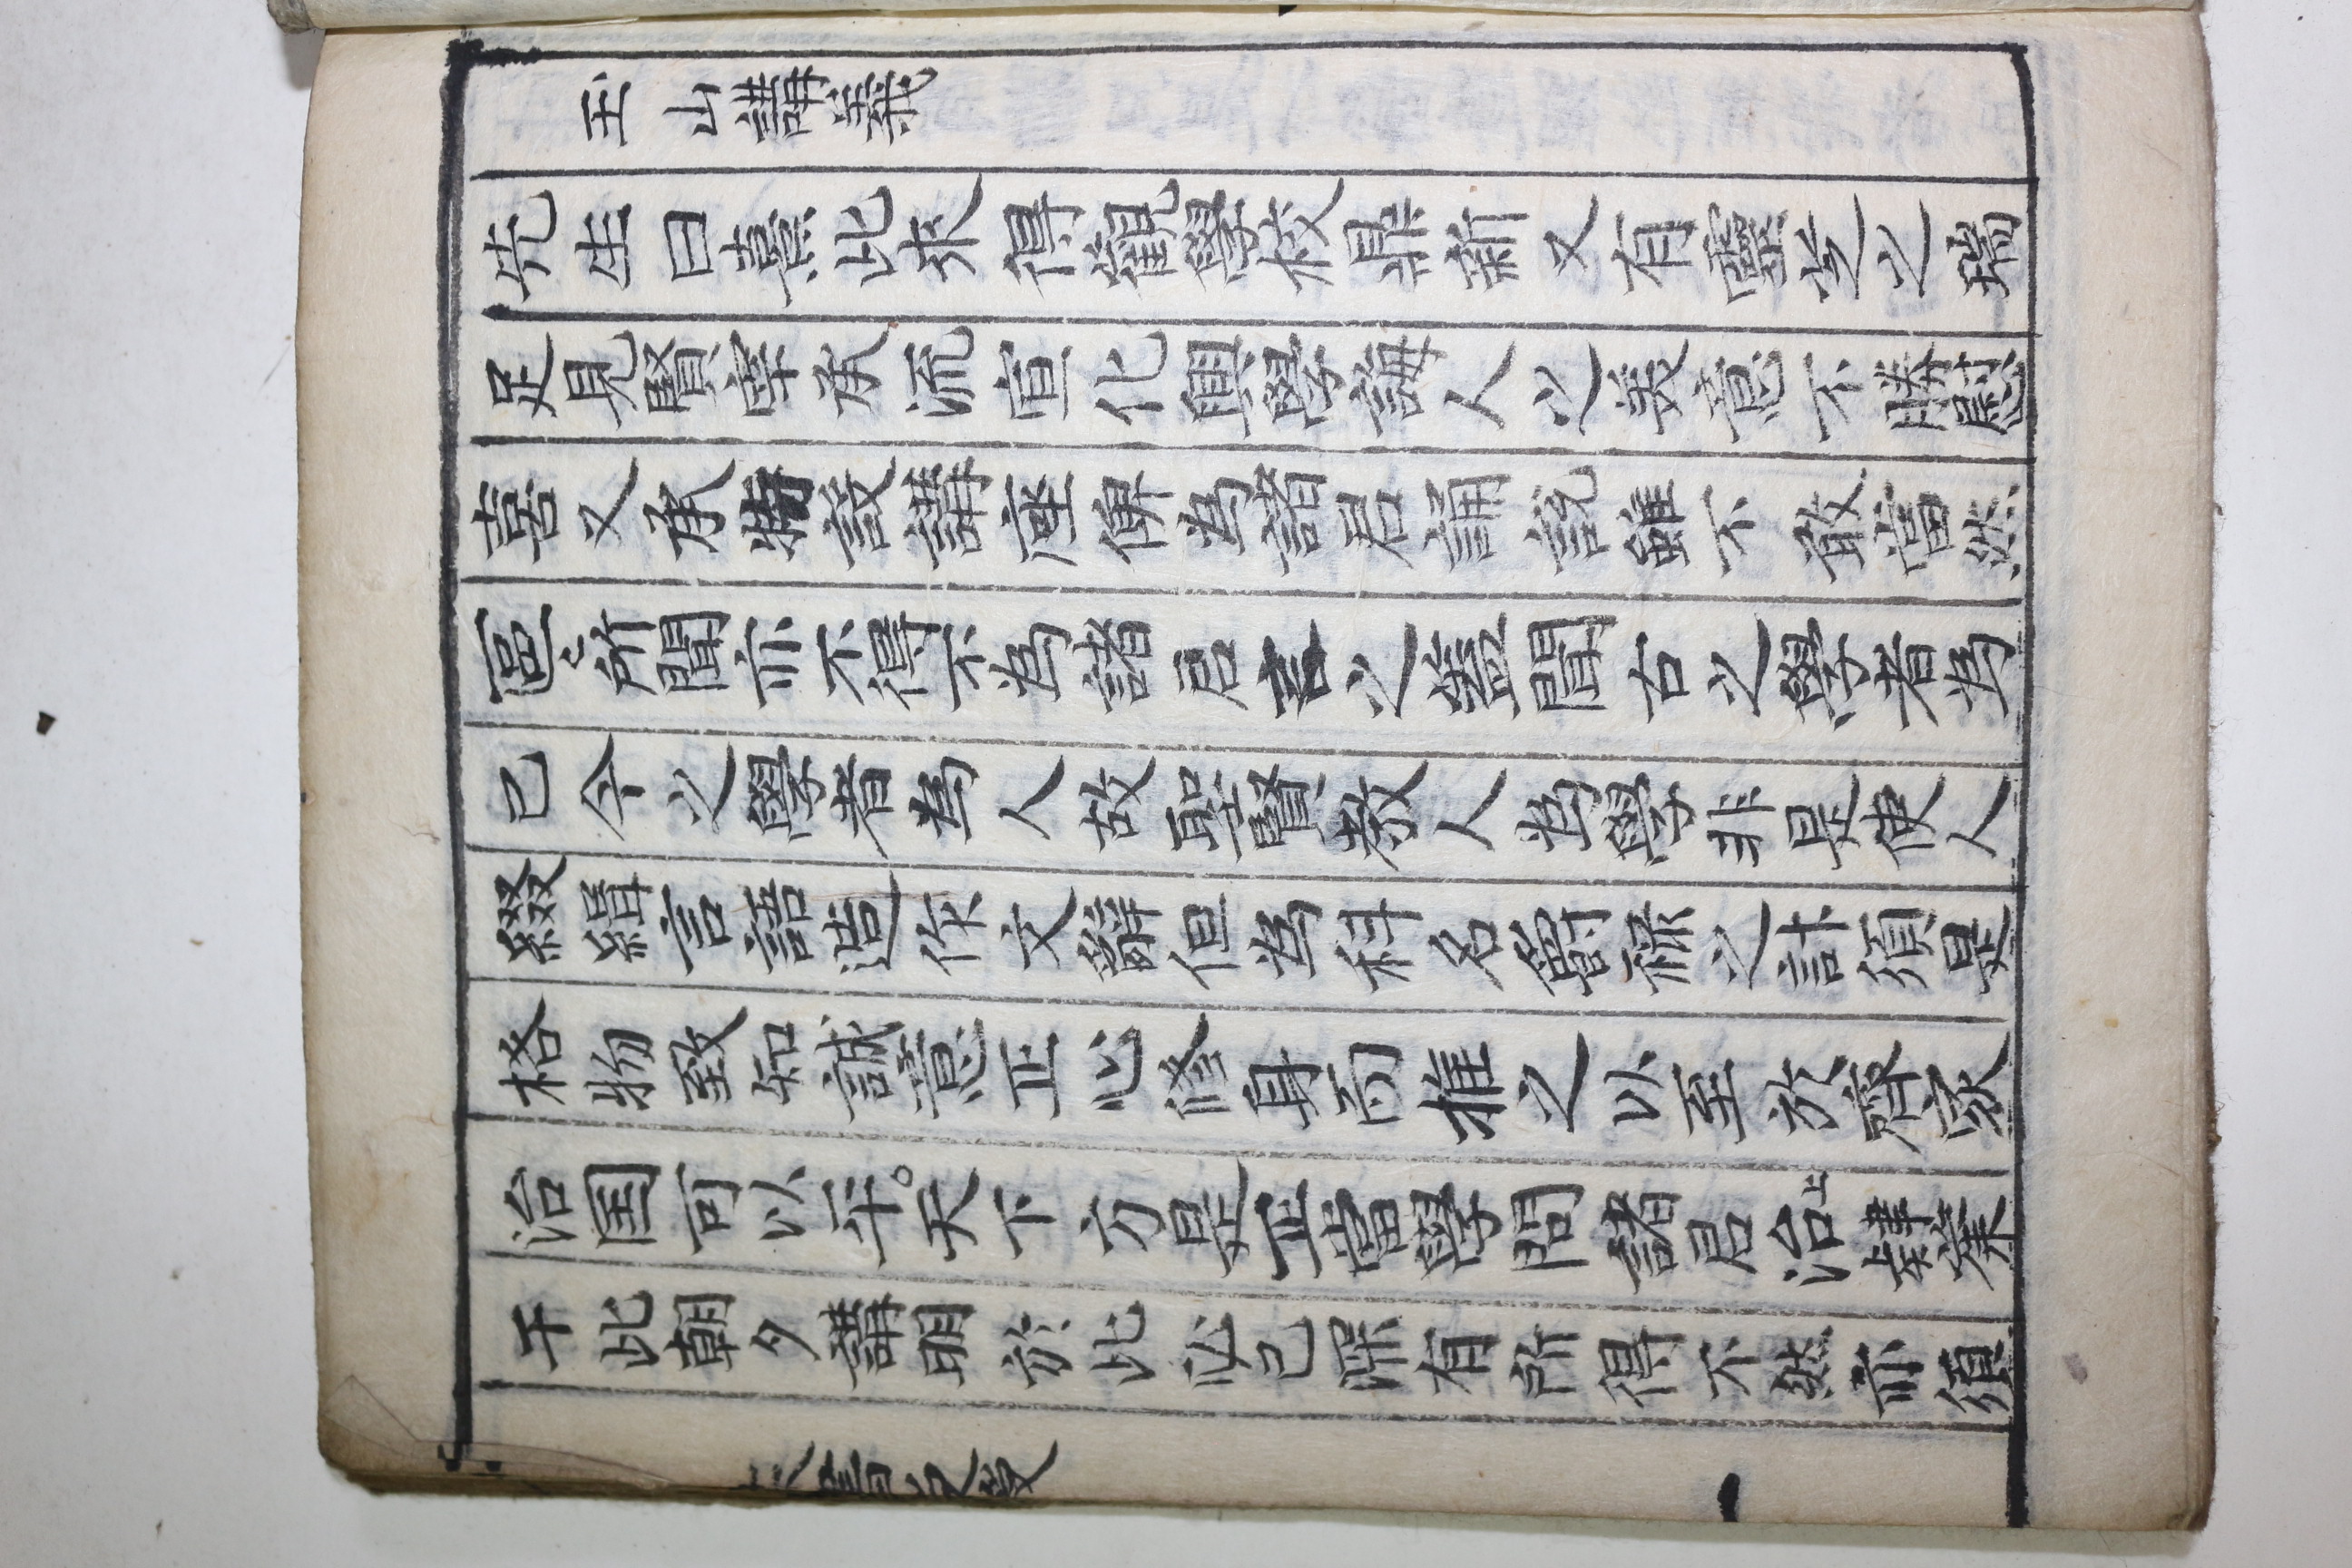 玉山講義
先生曰熹此來得觀學校鼎新又有靈芝之瑞
足見賢宰承流宣化興學誨人之美意不勝慰
喜又承特設講座俾為諸君誦説雖不敢當然
區〻所聞亦不得不為諸君言之蓋聞古之學者為
己今之學者為人故聖賢教人為學非是使人
綴緝言語造作文辭但為科名爵祿之計須是
格物致知誠意正心修身而推之以至於齊家
治国可以平。天下方是正當學問諸君治上肄業
于此朝夕講明於此必己深有所得不然亦須
一